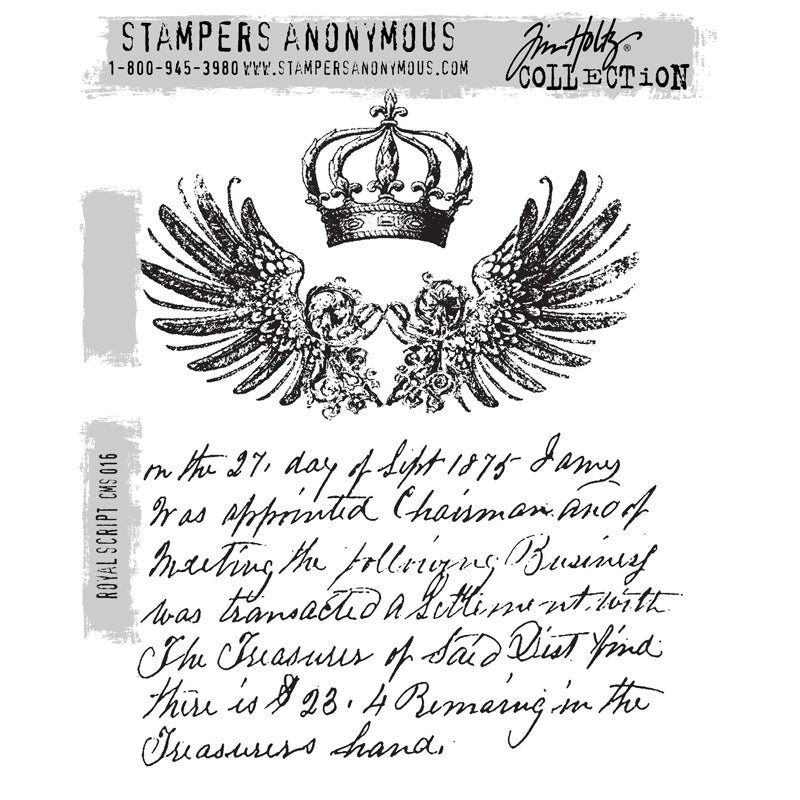 STAMPERS ANONYMOUS
1-800-945-3980 WWW.STAMPERSANONYMOUS.COM
Tim Holtz®
COLLECTION
ROYAL SCRIPT CMS 016
on the 27. day of Sept 1875 James
Was appointed Chairman and of
Meeting the following Business
was transacted A Settlement with
The Treasurer of Said Dist find
there is $23.4 Remaring in the
Treasurers hand.